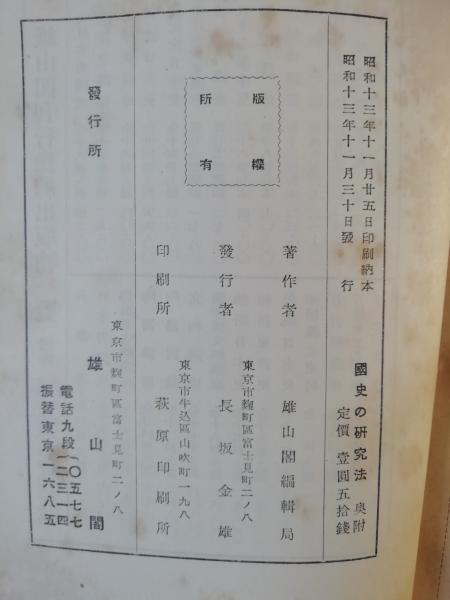 昭和十三年十一月廿五日印刷納本
昭和十三年十一月三十日發行
國史の研究法 奥附
定價 壹圓五拾錢
版權
所有
著作者 雄山閣編輯局
東京市麹町區富士見町二ノ八
發行者 長坂金雄
東京市牛込區山吹町一九八
印刷所 萩原印刷所
發行所
東京市麹町區富士見町二ノ八
雄山閣
電話九段(二〇五七七
(二二三一四
振替東京一六八五